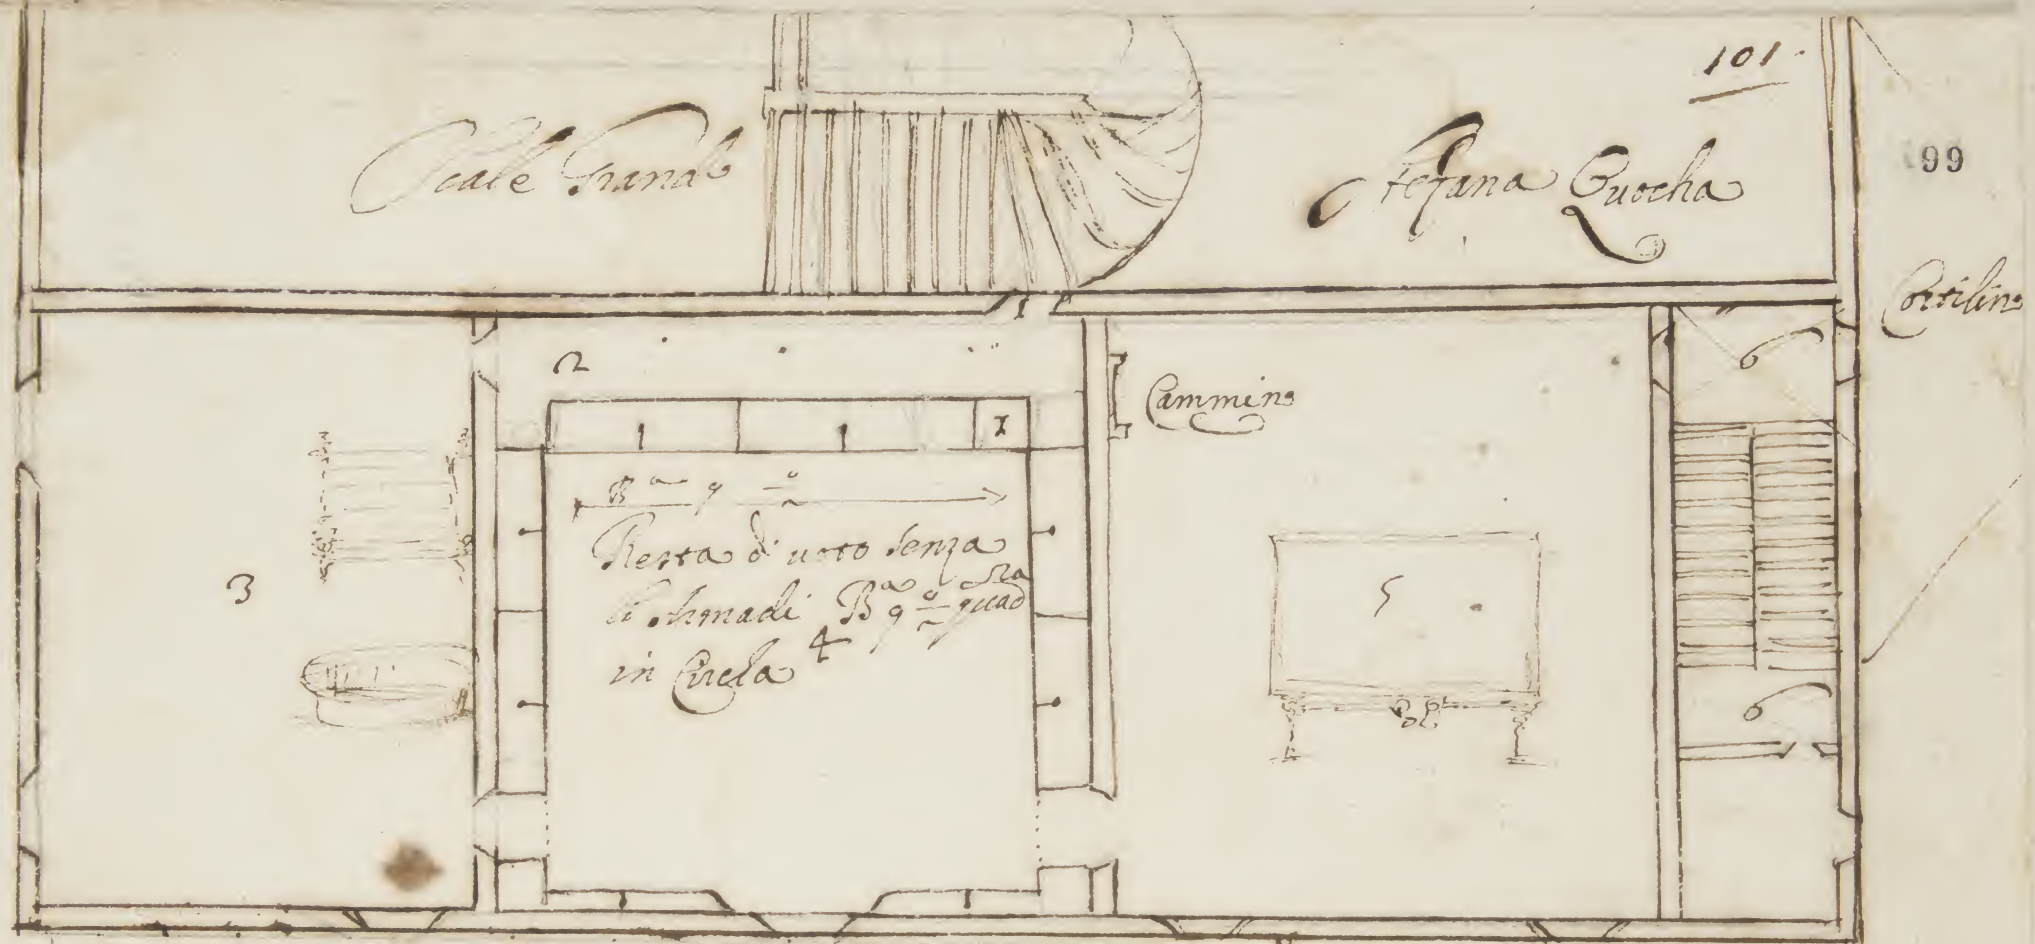 101
Scale Grandi
Stefana Quocha
99
Cortilino
2
6
Cammino
1
B.a 9
Resta di uoto senza
li Armadi B.a 9 quad.ra
in Circa
4
3
5
6